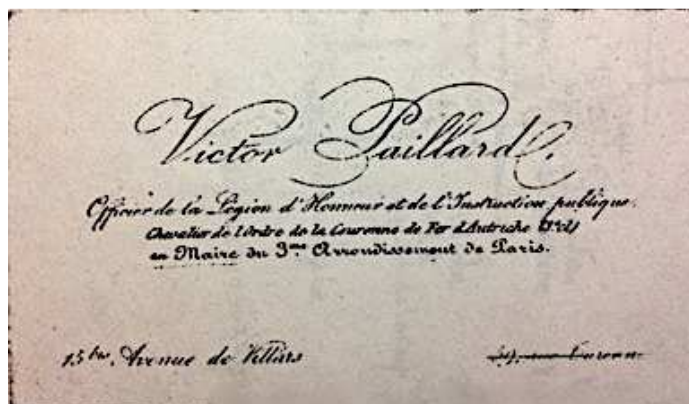 Victor Paillard
Officier de la Légion d'Honneur et de l'Instruction publique.
Chevalier de l'Ordre de la Couronne de Fer d'Autriche
en Maire du 3me Arrondissement de Paris.
15 bis, Avenue de Villars